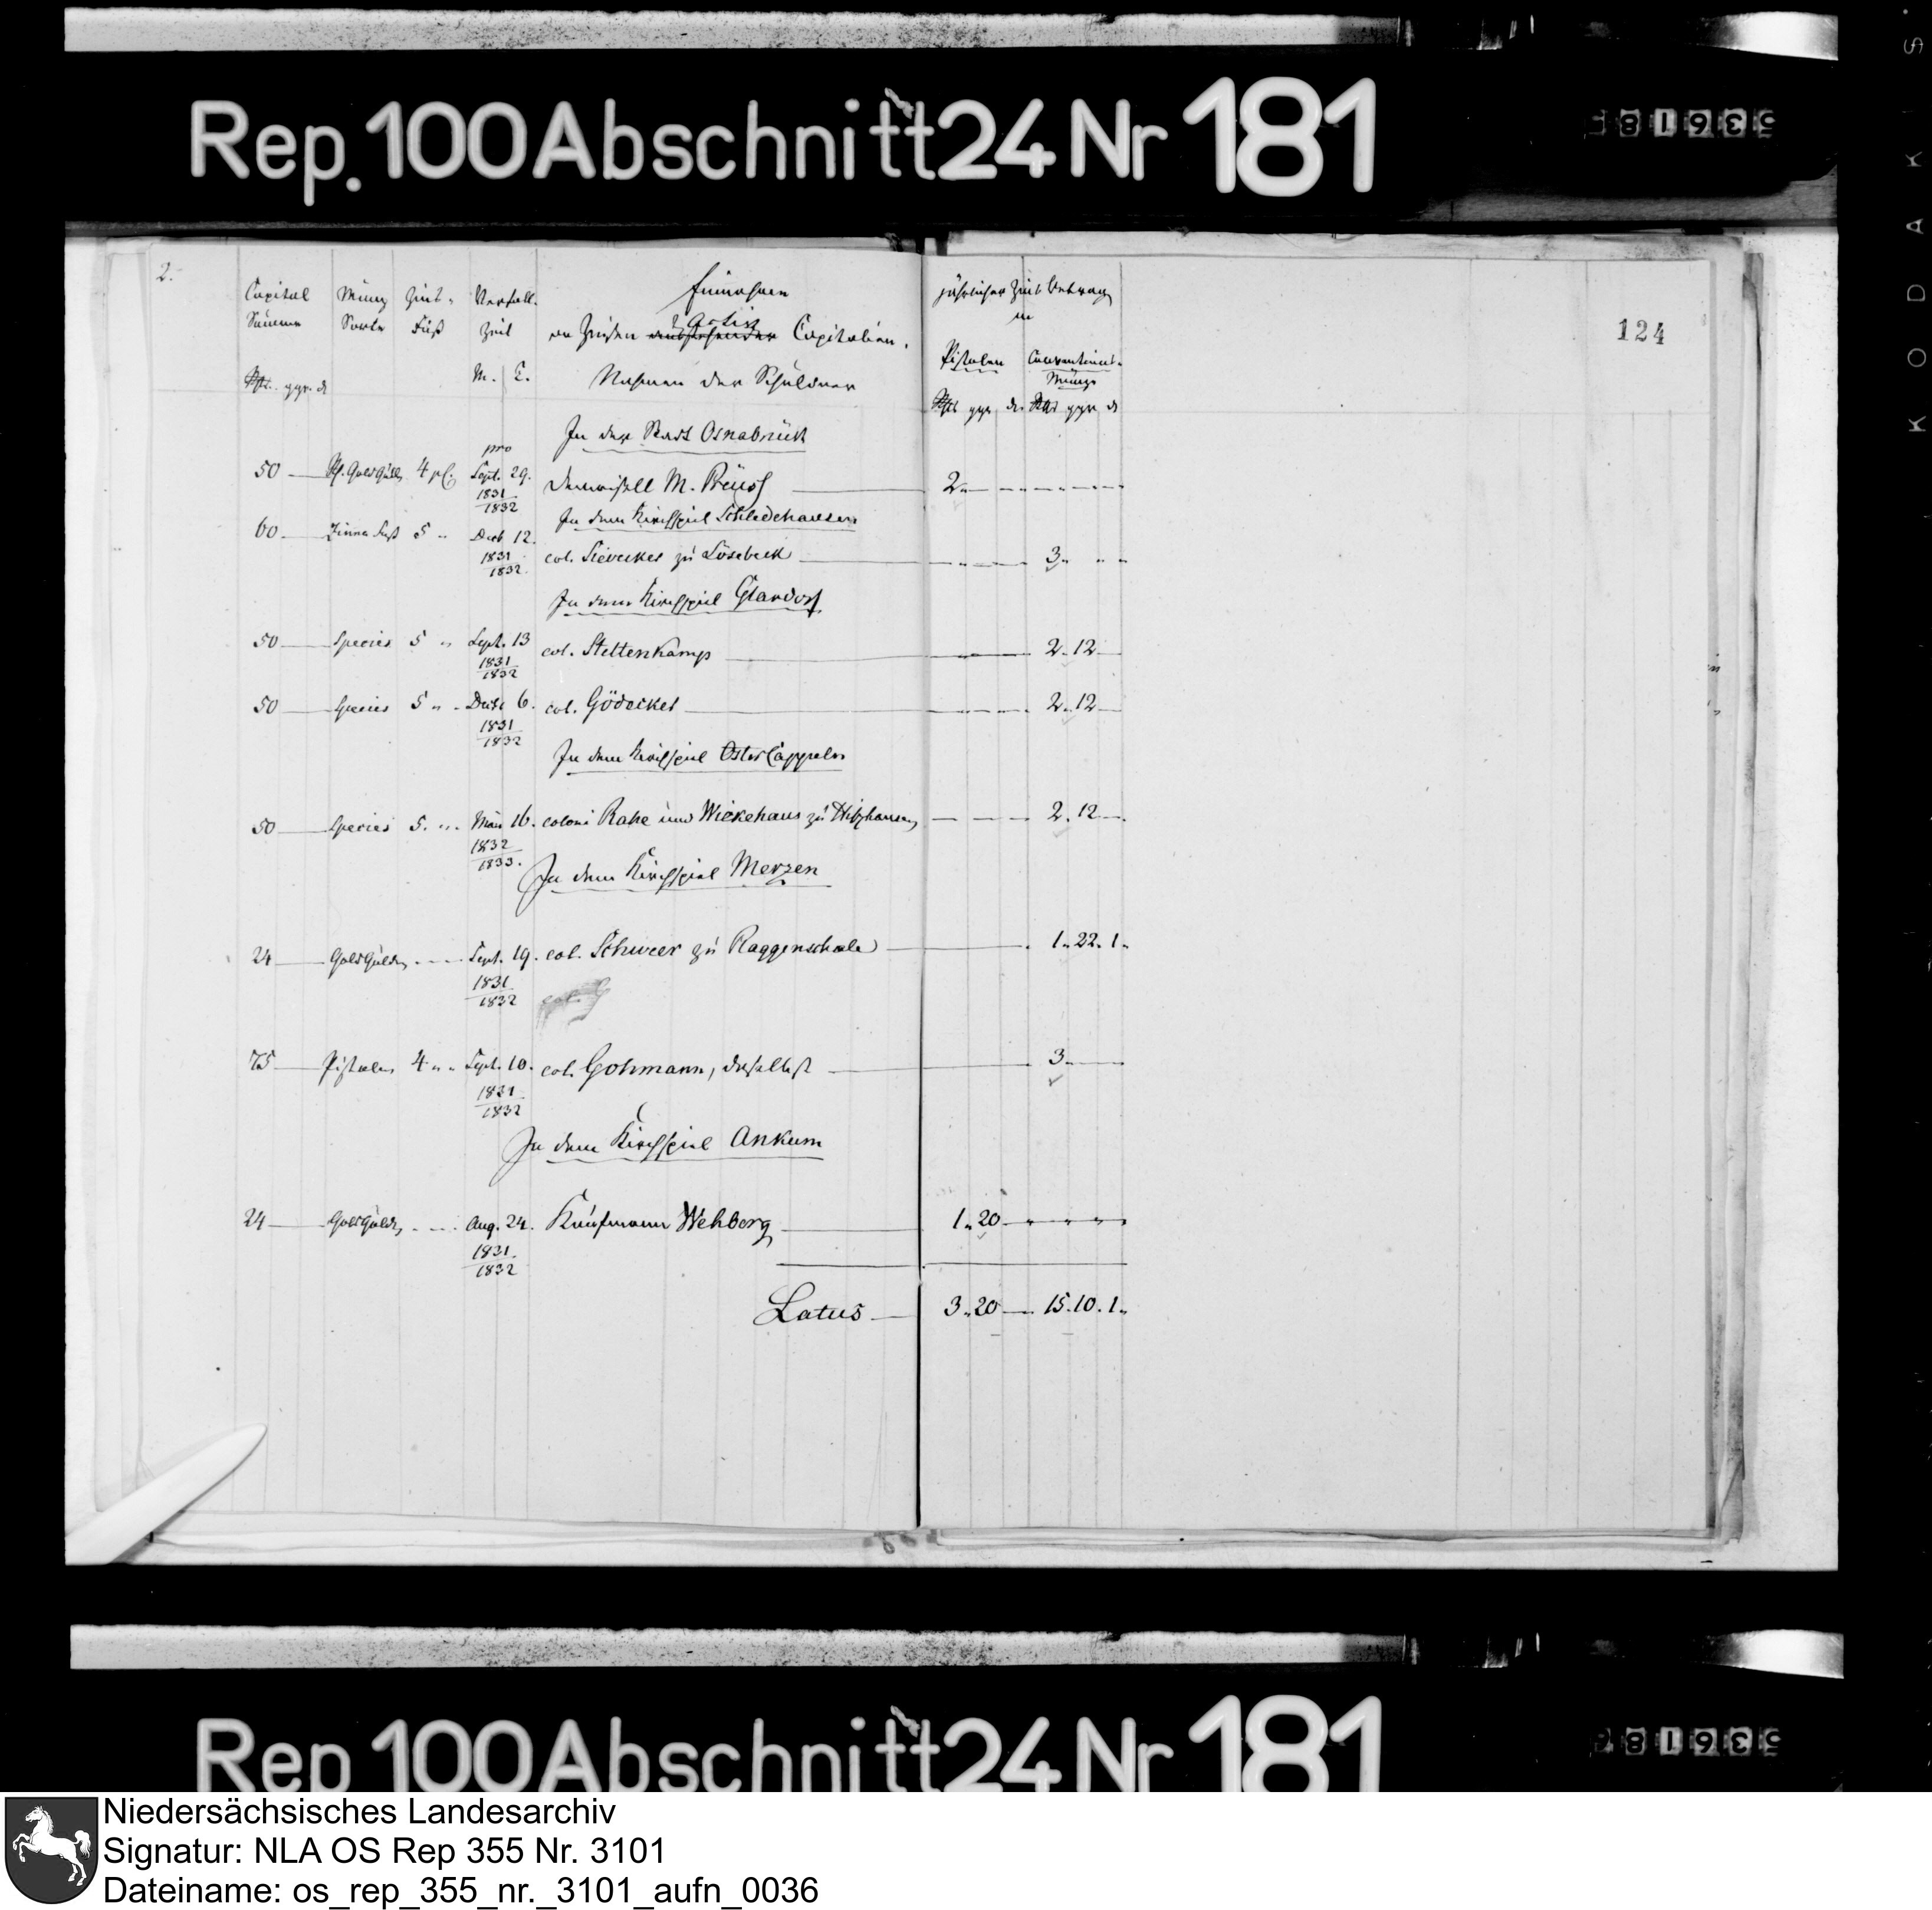 Rep. 100 Abschnitt 24 Nr 181
2.
124
Capital Summe
Münz Sorte
Zins-Fuß
Verfall-Zeit
M. T.
Einnahme
an Zinsen Activ Capitalien.
Nahmen der Schuldner
jährlicher Zins Betrag
in
Pistolen
Conventions-Münze
ggr. d
ggr d. ggr d
In der Stadt Osnabrück
pro
50 Goldgülden 4 pC. Sept. 29. 1831/1832 Demoisell M. 2
In dem Kirchspiel Schledehausen
60 5 " Decb 12. 1831/1832 col. Sieveker zu Lösebeck 3
In dem Kirchspiel Glandorf
50 Species 5 " Sept. 13 1831/1832 col. Stettenkamp 2. 12
50 Species 5 " Decbr 6. 1831/1832 col. Gödecker 2. 12
In dem Kirchspiel OsterCappeln
50 Species 5. " 16. 1832/1833. coloni Rahe und Wiekehaus zu Hitzhausen 2. 12
In dem Kirchspiel Merzen
24 Goldgülden Sept. 19. 1831/1832 col. Schweer zu Raggenschale 1. 22. 1.
col.
75 Pistolen 4 " Sept. 10. 1831/1832 col. Gohmann, daselbst 3
In dem Kirchspiel Ankum
24 Goldgülden Aug. 24. 1831/1832 Kaufmann Wehberg 1. 20
Latus 3. 20 15. 10. 1.
Rep 100 Abschnitt 24 Nr 181
Niedersächsisches Landesarchiv
Signatur: NLA OS Rep 355 Nr. 3101
Dateiname: os_rep_355_nr._3101_aufn_0036